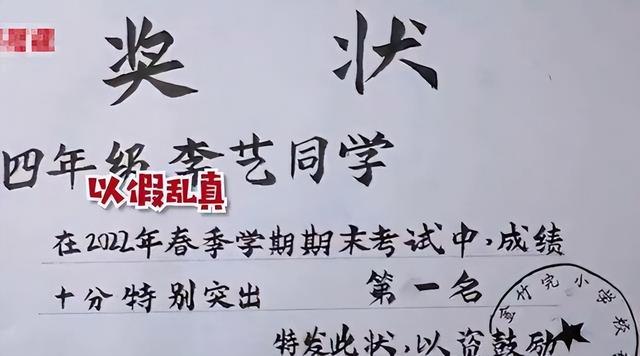 奖 状
四年级 李艺同学
以假乱真
在2022年春季学期期末考试中，成绩
十分特别突出 第一名
特发此状，以资鼓励
小学校